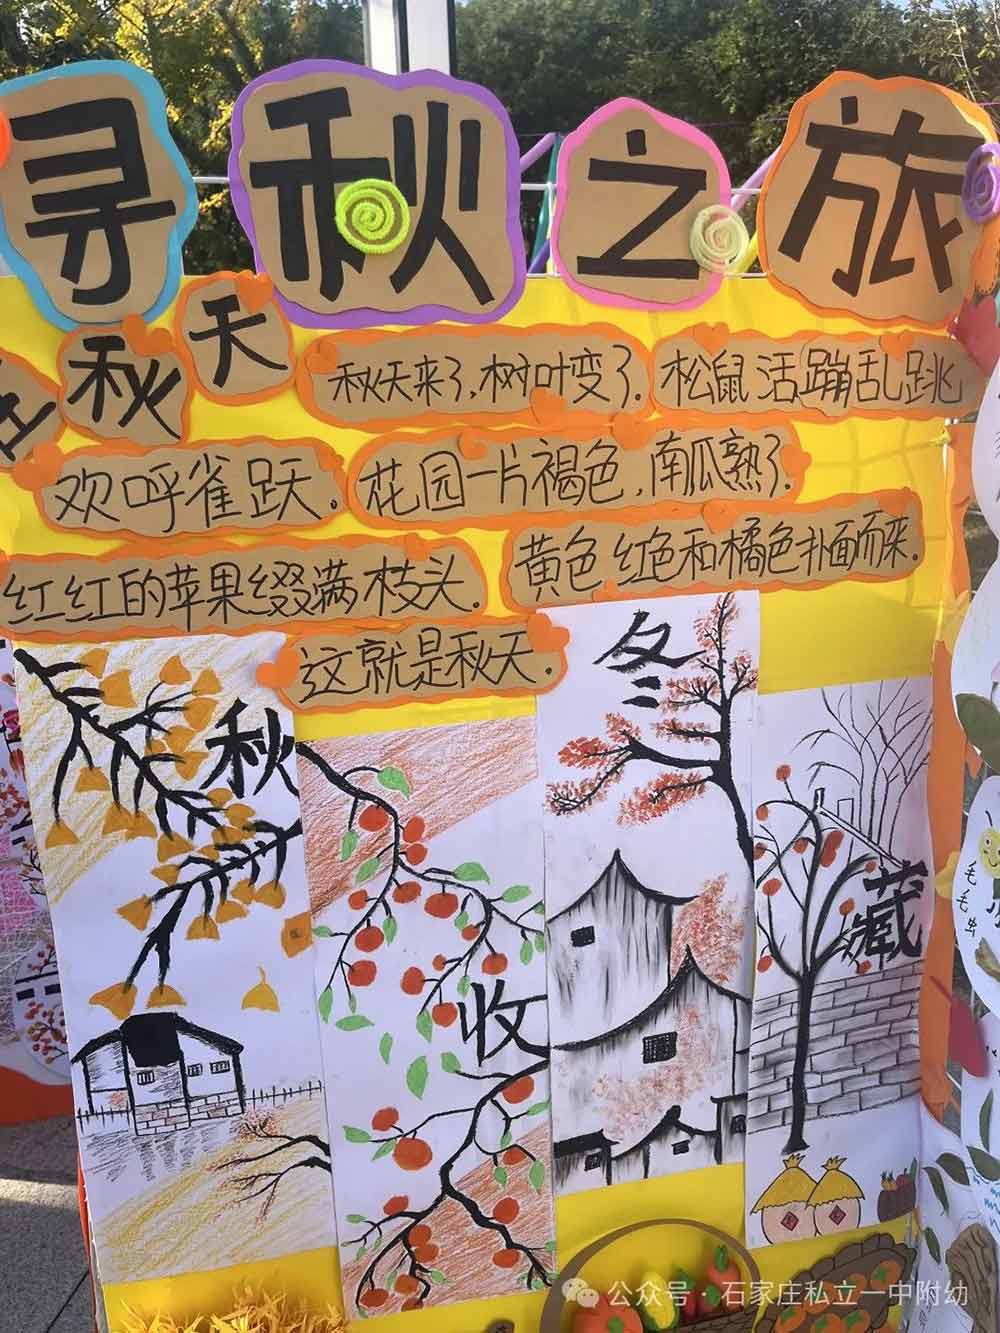 寻秋之旅
秋天
秋天来了,树叶变了.松鼠活蹦乱跳
欢呼雀跃.花园一片褐色,南瓜熟了.
红红的苹果缀满枝头.黄色红色和橘色扑面而来.
这就是秋天.
秋
收
冬
藏
毛毛虫
公众号·石家庄私立一中附幼